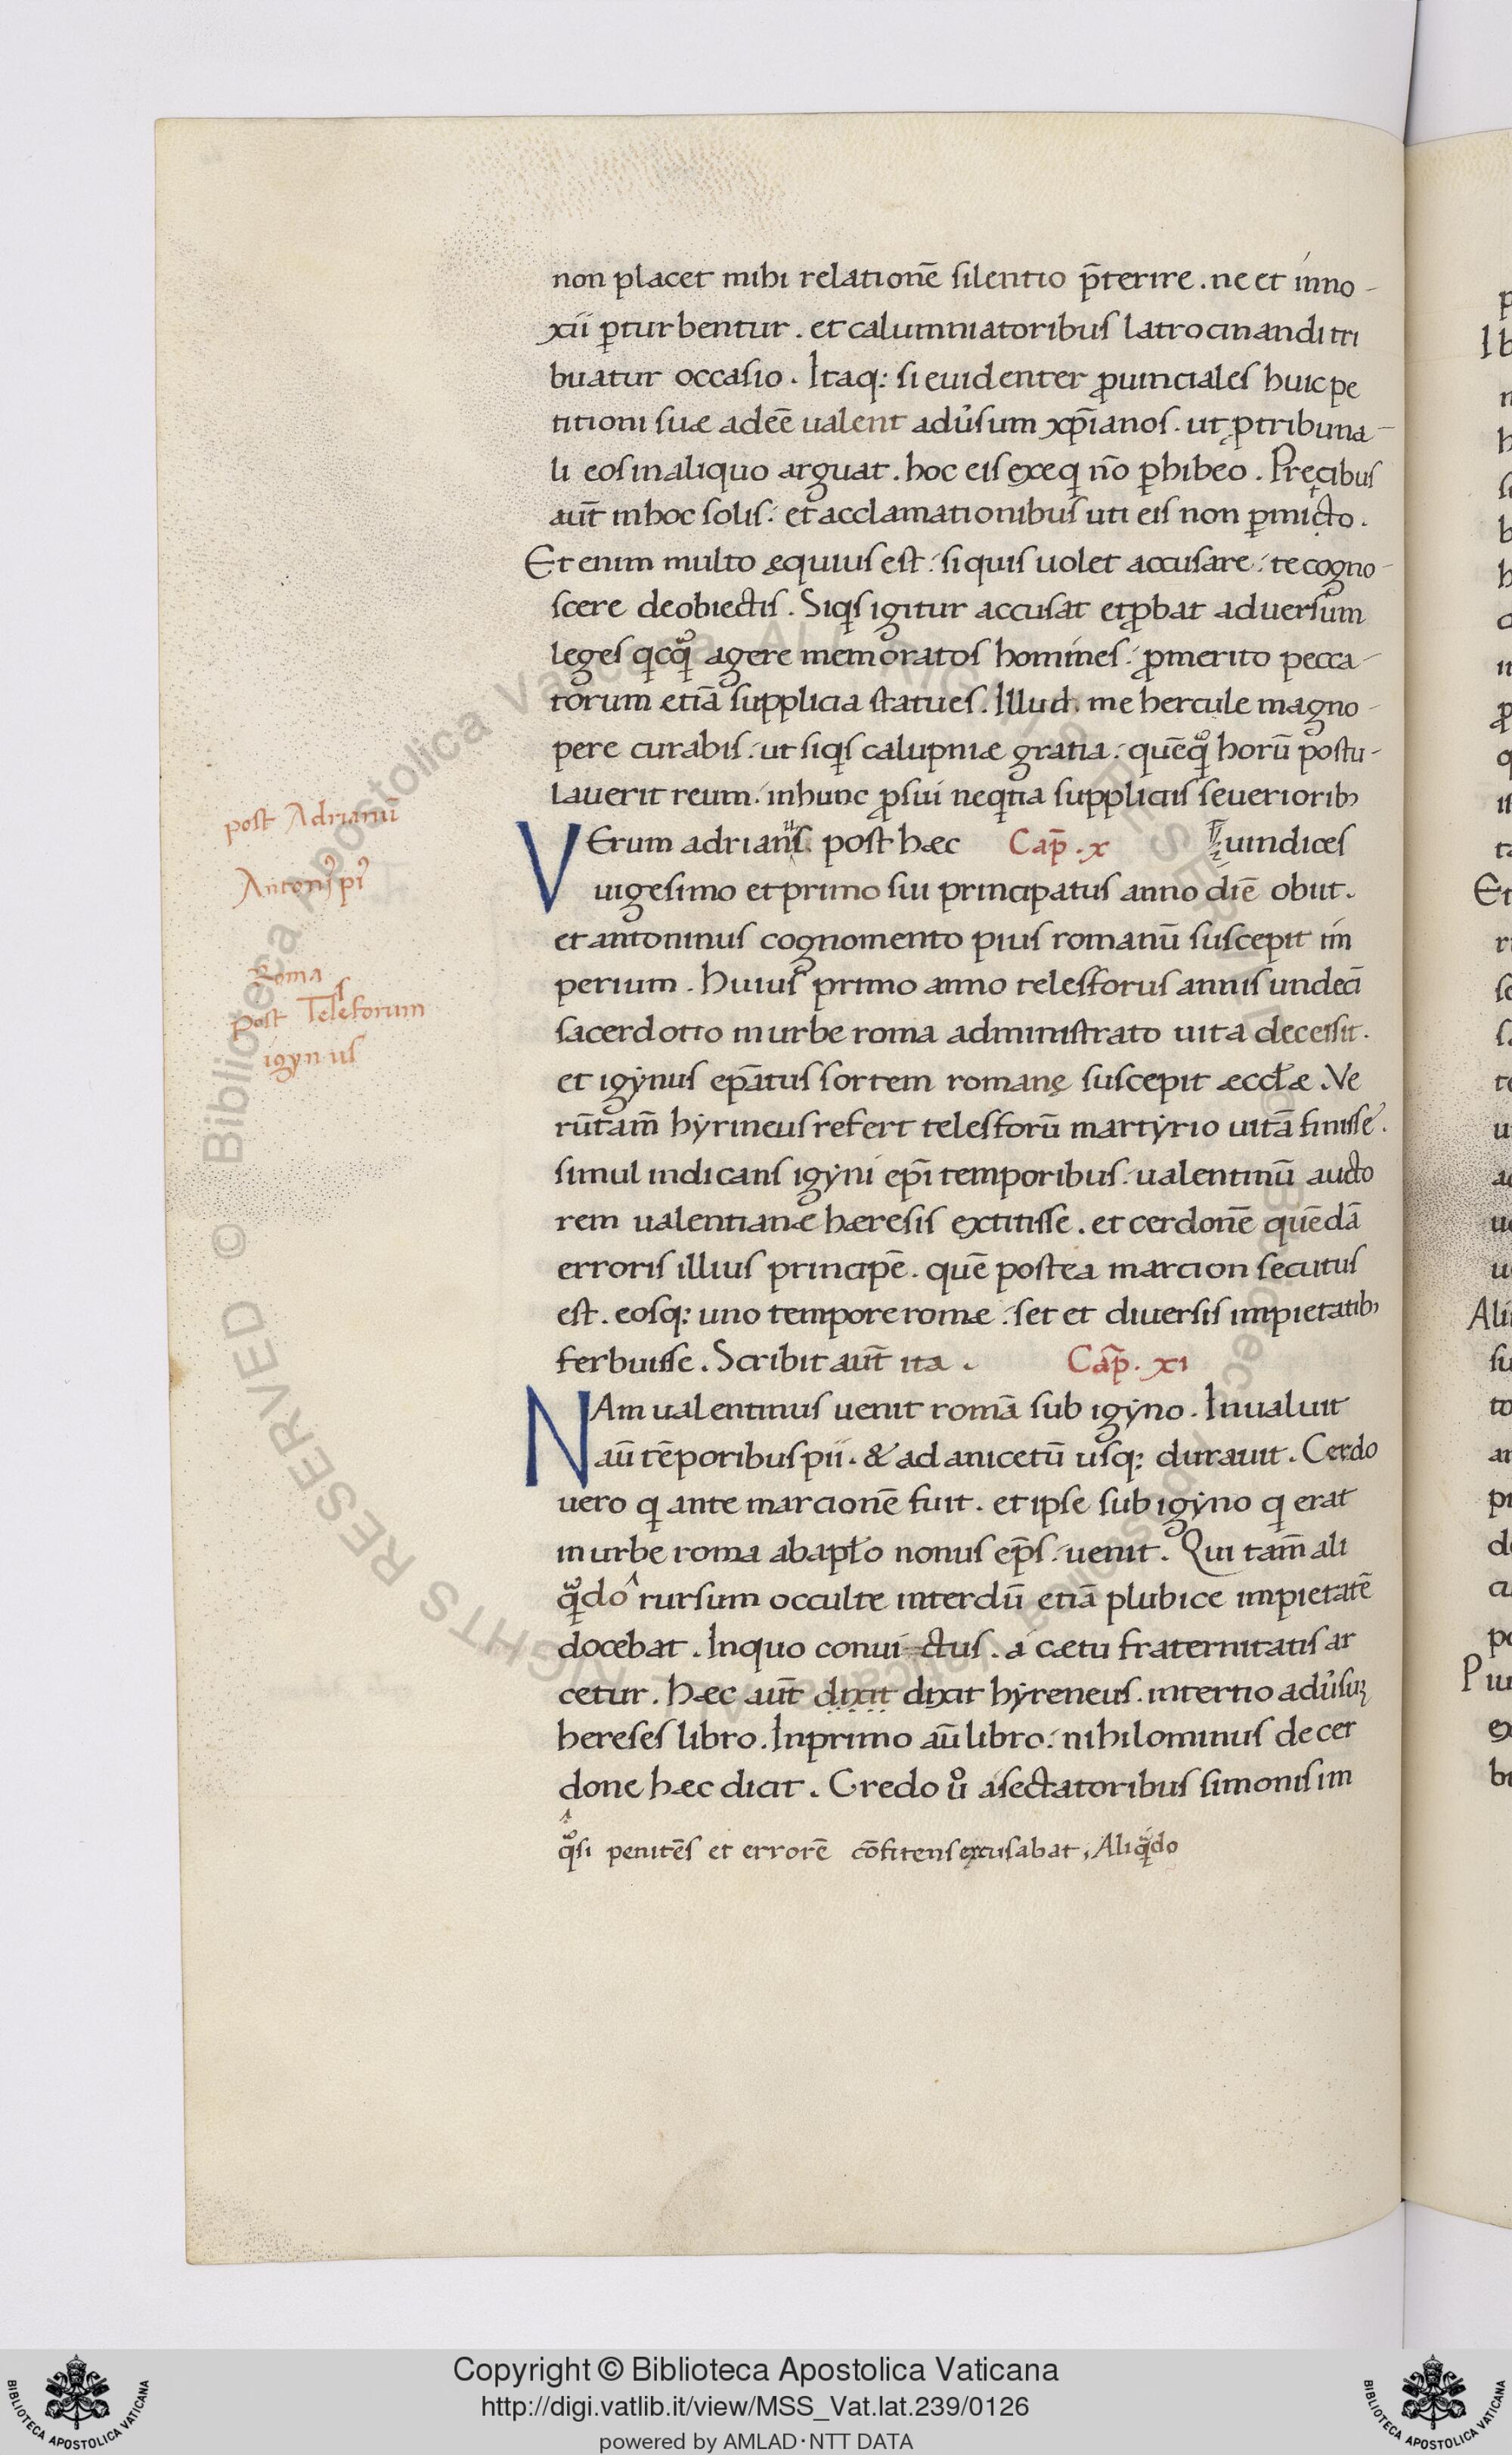 non placet mihi relationē silentio p̄terire . ne et inno-
xii ꝑturbentur . et calumniatoribus latrocinandi tri
buatur occasio . Itaq: si euidenter ꝓuinciales huic pe
titioni suæ adeē ualent adu̓sum xp̄ianos . ut ꝓ tribuna-
li eos in aliquo arguat . hoc eis exeq̨ nō ꝓhibeo . Pręcibus
aut̄ in hoc solis : et acclamationibus uti eis non ꝑmicto .
Et enim multo ęquius est : si quis uolet accusare : te cogno-
scere de obiectis . Siq̨s igitur accusat et ꝓbat aduersum
leges q̨cq̨̊ agere memoratos homines : ꝓ merito pecca-
torum etiā supplicia statues . Illud . me hercule magno-
pere curabis : ut siq̨s calupniæ gratia : quēq̨̊ horū postu-
lauerit reum : in hunc ꝓ sui neq̨tia suppliciis seueriorib;
VErum adrianus . post hæc Cap̄ . x uindices
uigesimo et primo sui principatus anno diē obiit .
et antoninus cognomento pius romanū suscepit im
perium . Huius primo anno telesforus annis undecī
sacerdotio in urbe roma administrato uita decessit .
et igẏnus ep̄atus sortem romanę suscepit æccłæ . Ve
rūtam̄ hẏrineus refert telesforū martẏrio uitā finisse .
simul indicans igẏni ep̄i temporibus : ualentinū aucto
rem ualentianæ hæresis extitisse . et cerdonē quēdā
erroris illius principē . quē postea marcion secutus
est . eosq: uno tempore romæ : set et diuersis impietatib;
ferbuisse . Scribit aut̄ ita . Cap̄ . xi
NAm ualentinus uenit romā sub igẏno . Inualuit
aū tēporibus pii . & ad anicetū usq: durauit . Cerdo
uero q̨ ante marcionē fuit . et ipse sub igẏno q̨ erat
in urbe roma ab apł̄o nonus ep̄s : uenit . Qui tam̄ ali
q̨̊do rursum occulte interdū etiā plubice impietatē
docebat . In quo conui-ctus . a cætu fraternitatis ar
cetur . Hæc aut̄ dixit dixit hẏreneus . in tertio adu̓sus
hereses libro . In primo aū libro : nihilominus de cer
done hæc dicit . Credo ů a sectatoribus simonis im
q̨̊si penitēs et errorē cōfitens excusabat , Aliq̨̊do
post Adrianū
Antonj pij
Roma
post Telesforum
igynus
Copyright © Biblioteca Apostolica Vaticana
http://digi.vatlib.it/view/MSS_Vat.lat.239/0126
powered by AMLAD·NTT DATA
BIBLIOTECA APOSTOLICA VATICANA
BIBLIOTECA APOSTOLICA VATICANA